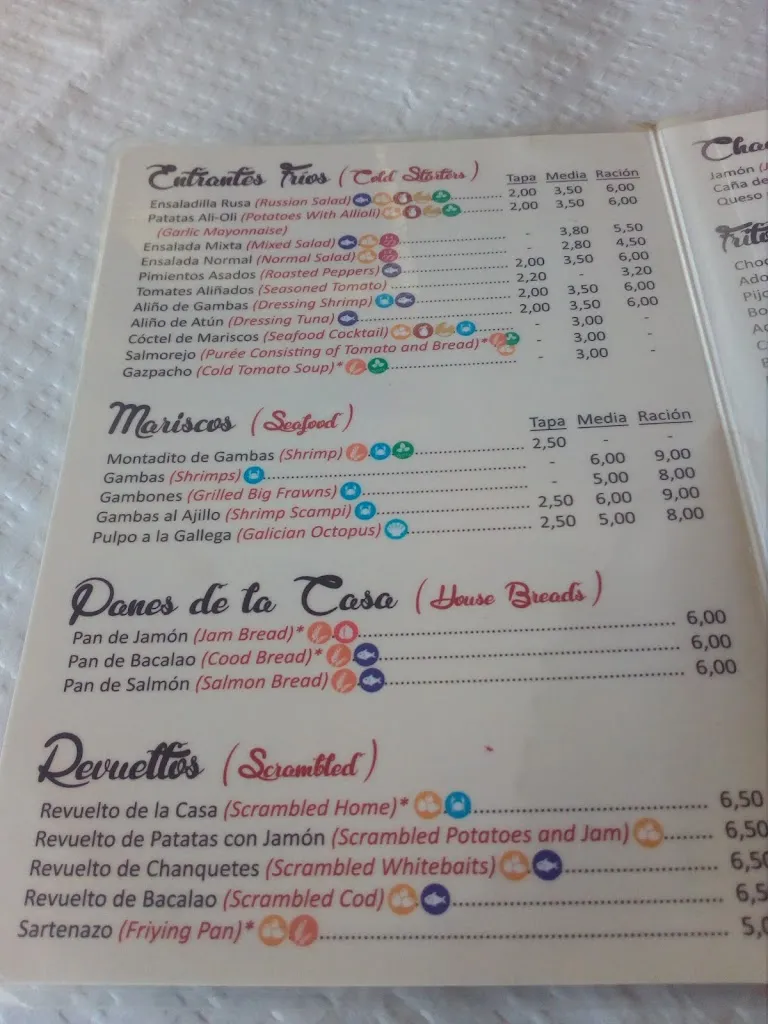 Entrantes Fríos (Cold Starters)
Tapa Media Ración
Ensaladilla Rusa (Russian Salad) 2,00 3,50 6,00
Patatas Ali-Oli (Potatoes With Allioli) 2,00 3,50 6,00
(Garlic Mayonnaise)
Ensalada Mixta (Mixed Salad) - 3,80 5,50
Ensalada Normal (Normal Salad) - 2,80 4,50
Pimientos Asados (Roasted Peppers) 2,00 3,50 6,00
Tomates Aliñados (Seasoned Tomato) 2,20 - 3,20
Aliño de Gambas (Dressing Shrimp) 2,00 3,50 6,00
Aliño de Atún (Dressing Tuna) 2,00 3,50 6,00
Cóctel de Mariscos (Seafood Cocktail) - 3,00 -
Salmorejo (Purée Consisting of Tomato and Bread)* - 3,00 -
Gazpacho (Cold Tomato Soup)* - 3,00 -
Mariscos (Seafood)
Tapa Media Ración
Montadito de Gambas (Shrimp) 2,50 - -
Gambas (Shrimps) - 6,00 9,00
Gambones (Grilled Big Frawns) - 5,00 8,00
Gambas al Ajillo (Shrimp Scampi) 2,50 6,00 9,00
Pulpo a la Gallega (Galician Octopus) 2,50 5,00 8,00
Panes de la Casa (House Breads)
Pan de Jamón (Jam Bread)* 6,00
Pan de Bacalao (Cood Bread)* 6,00
Pan de Salmón (Salmon Bread) 6,00
Revueltos (Scrambled)
Revuelto de la Casa (Scrambled Home)* 6,50
Revuelto de Patatas con Jamón (Scrambled Potatoes and Jam) 6,50
Revuelto de Chanquetes (Scrambled Whitebaits) 6,50
Revuelto de Bacalao (Scrambled Cod) 6,5
Sartenazo (Friying Pan)* 5,0
Cha
Jamón
Caña de
Queso
Frito
Choc
Ado
Pijo
Bo
Ad
C